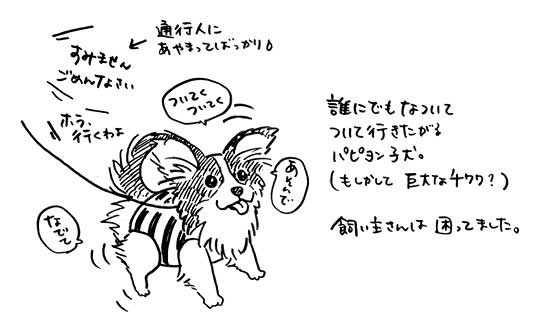 通行人に
あやまってばっかり
すみません
ごめんなさい
ホラ、
行くわよ
ついてく
ついてく
あそんで
なでて
誰にでもなついて
ついて行きたがる
パピヨン子犬。
(もしかして 巨大なチワワ?)
飼い主さんは 困ってました。